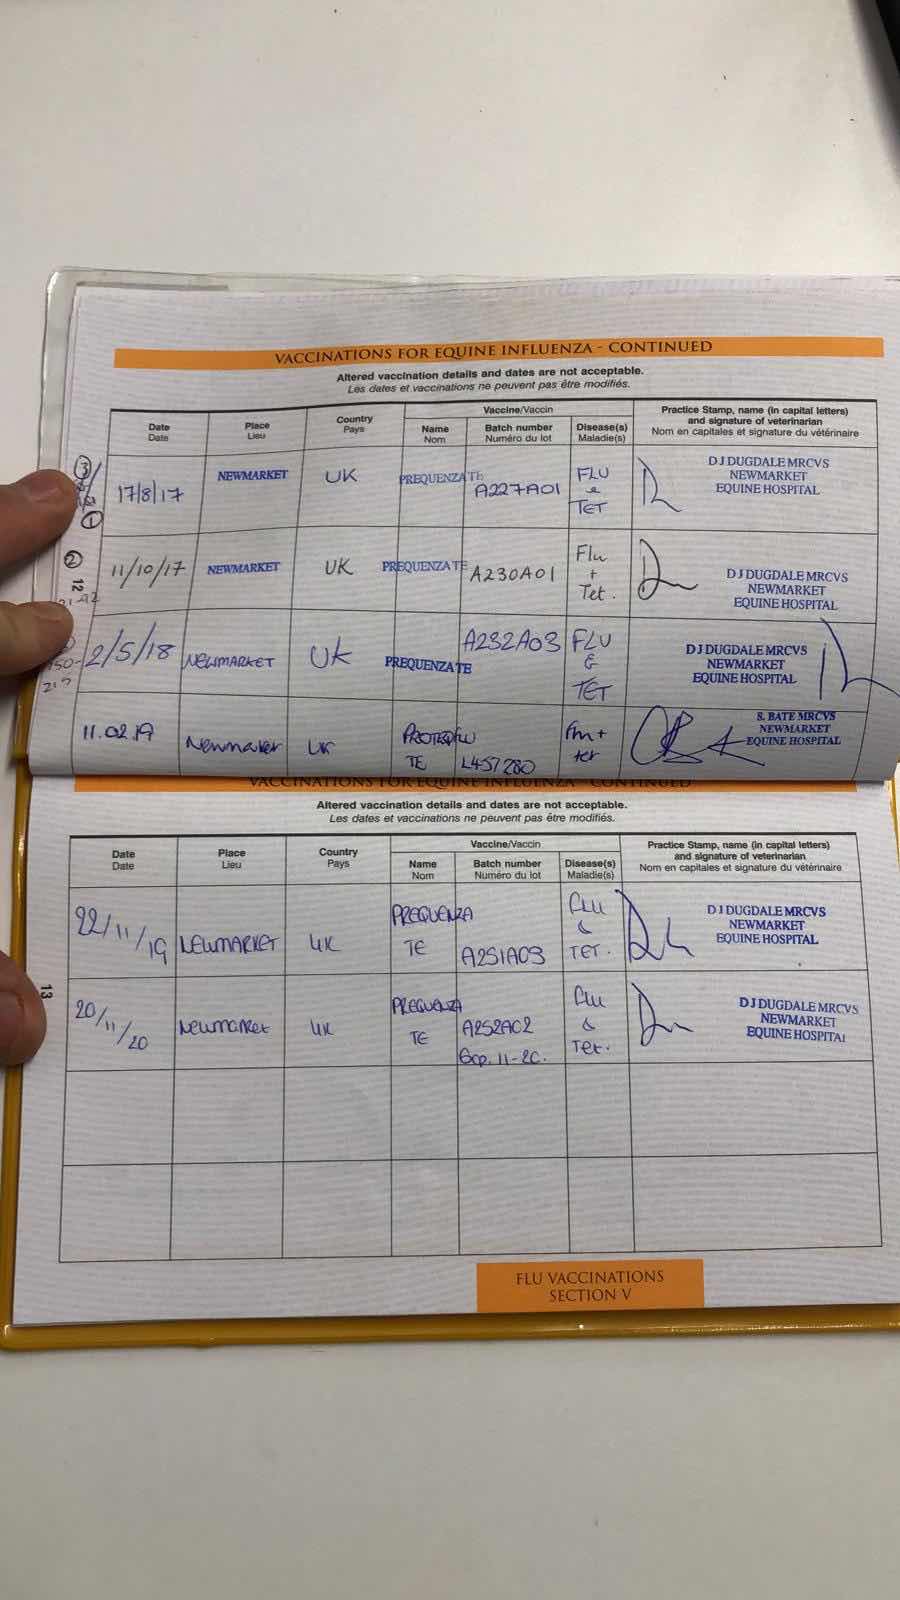 VACCINATIONS FOR EQUINE INFLUENZA - CONTINUED
Altered vaccination details and dates are not acceptable.
Les dates et vaccinations ne peuvent pas être modifiés.
Date Date
Place Lieu
Country Pays
Vaccine/Vaccin
Name Nom
Batch number Numéro du lot
Disease(s) Maladie(s)
Practice Stamp, name (in capital letters)
and signature of veterinarian
Nom en capitales et signature du vétérinaire
17/8/17 NEWMARKET UK PREQUENZA TE A227A01 FLU & TET
D J DUGDALE MRCVS
NEWMARKET
EQUINE HOSPITAL
12
11/10/17 NEWMARKET UK PREQUENZA TE A230A01 Flu + Tet.
D J DUGDALE MRCVS
NEWMARKET
EQUINE HOSPITAL
2/5/18 NEWMARKET UK PREQUENZA TE A232A03 FLU & TET
D J DUGDALE MRCVS
NEWMARKET
EQUINE HOSPITAL
11.02.19 Newmarket UK PROTEQFLU TE L457280 tet
S. BATE MRCVS
NEWMARKET
EQUINE HOSPITAL
VACCINATIONS FOR EQUINE INFLUENZA - CONTINUED
Altered vaccination details and dates are not acceptable.
Les dates et vaccinations ne peuvent pas être modifiés.
Date Date
Place Lieu
Country Pays
Vaccine/Vaccin
Name Nom
Batch number Numéro du lot
Disease(s) Maladie(s)
Practice Stamp, name (in capital letters)
and signature of veterinarian
Nom en capitales et signature du vétérinaire
22/11/19 NEWMARKET UK PREQUENZA TE A251A03 FLU & TET.
D J DUGDALE MRCVS
NEWMARKET
EQUINE HOSPITAL
13
20/11/20 Newmarket UK PREQUENZA TE A252A02 Flu & Tet.
D J DUGDALE MRCVS
NEWMARKET
EQUINE HOSPITAL
FLU VACCINATIONS
SECTION V